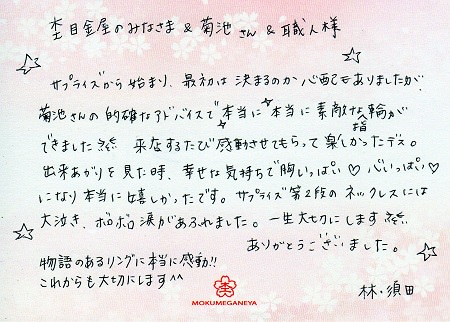 杢目金屋のみなさま & 菊池さん & 職人様
サプライズから始まり、最初は決まるのか心配もありましたが
菊池さんの的確なアドバイスで本当に本当に素敵な指輪が
できました 来店するたび感動させてもらって楽しかったデス。
出来あがりを見た時、幸せな気持ちで胸いっぱい♡ 心いっぱい♡
になり本当に嬉しかったです。サプライズ第2段のネックレスには
大泣き、ボロボロ涙があふれました。一生大切にします
ありがとうございました。
物語のあるリングに本当に感動!!
これからも大切にします^^
MOKUMEGANEYA
林・須田